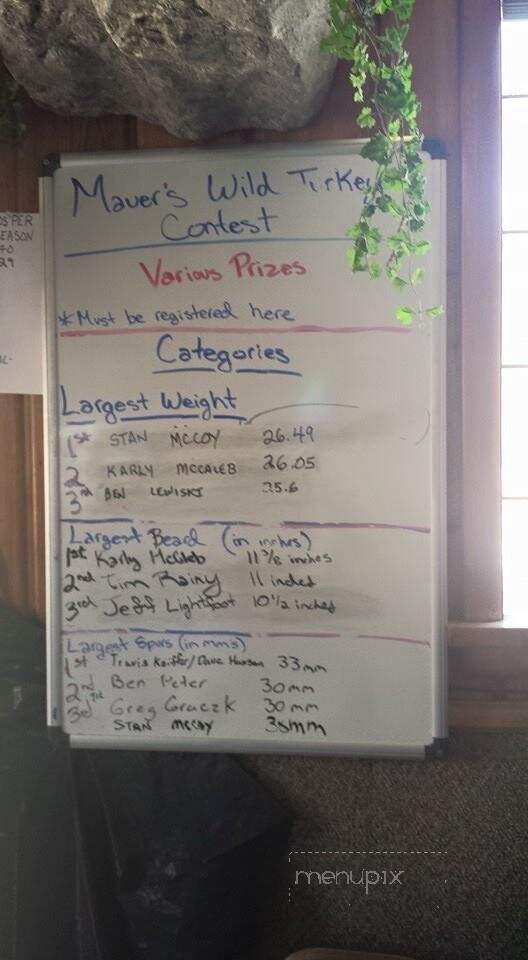 OS PER
EASON
40
29
Maver's Wild Turkey
Contest
Various Prizes
*Must be registered here
Categories
Largest Weight
1st STAN MCCOY 26.49
2 KARLY MCCALEB 26.05
3rd BEN LEWISKI 25.6
Largest Beard (in inches)
1st Karly McCaleb 11 3/8 inches
2nd Tim Rainy 11 inches
3rd Jeff Lightfoot 10 1/2 inches
Largest Spurs (in mm's)
1st Travis Keiffer/Dave Hanson 33mm
2nd Ben Peter 30mm
TIE
3rd Greg Graczk 30mm
STAN MCCOY 30mm
menupix